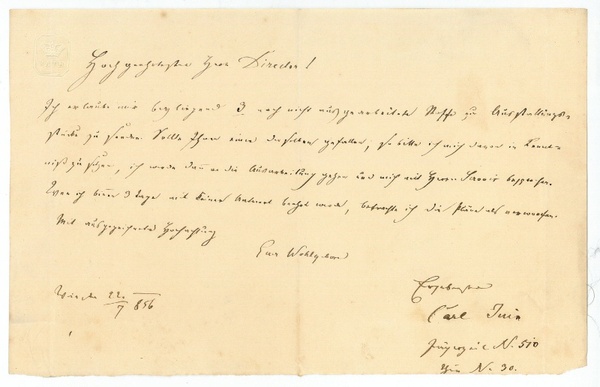 Hochgeehrtester Herr Director!
Ich erlaube mir beyliegend 3 noch nicht ausgearbeitete Stoffe zu Ausstattungs-
stücke zu senden. Sollte Ihnen einer derselben gefallen, so bitte ich mich davon in Kennt-
niß zu setzen, ich werde dann an die Ausarbeitung gehen und mich mit Herrn besprechen.
Wenn ich binnen 3 Tage mit keiner Antwort beehrt werde, betrachte ich die Pläne als verworfen.
Mit ausgezeichneter Hochachtung
Euer Wohlgeboren
Ergebenster
Wien den 22/7 856
Carl
N. 510
Thür No 30.